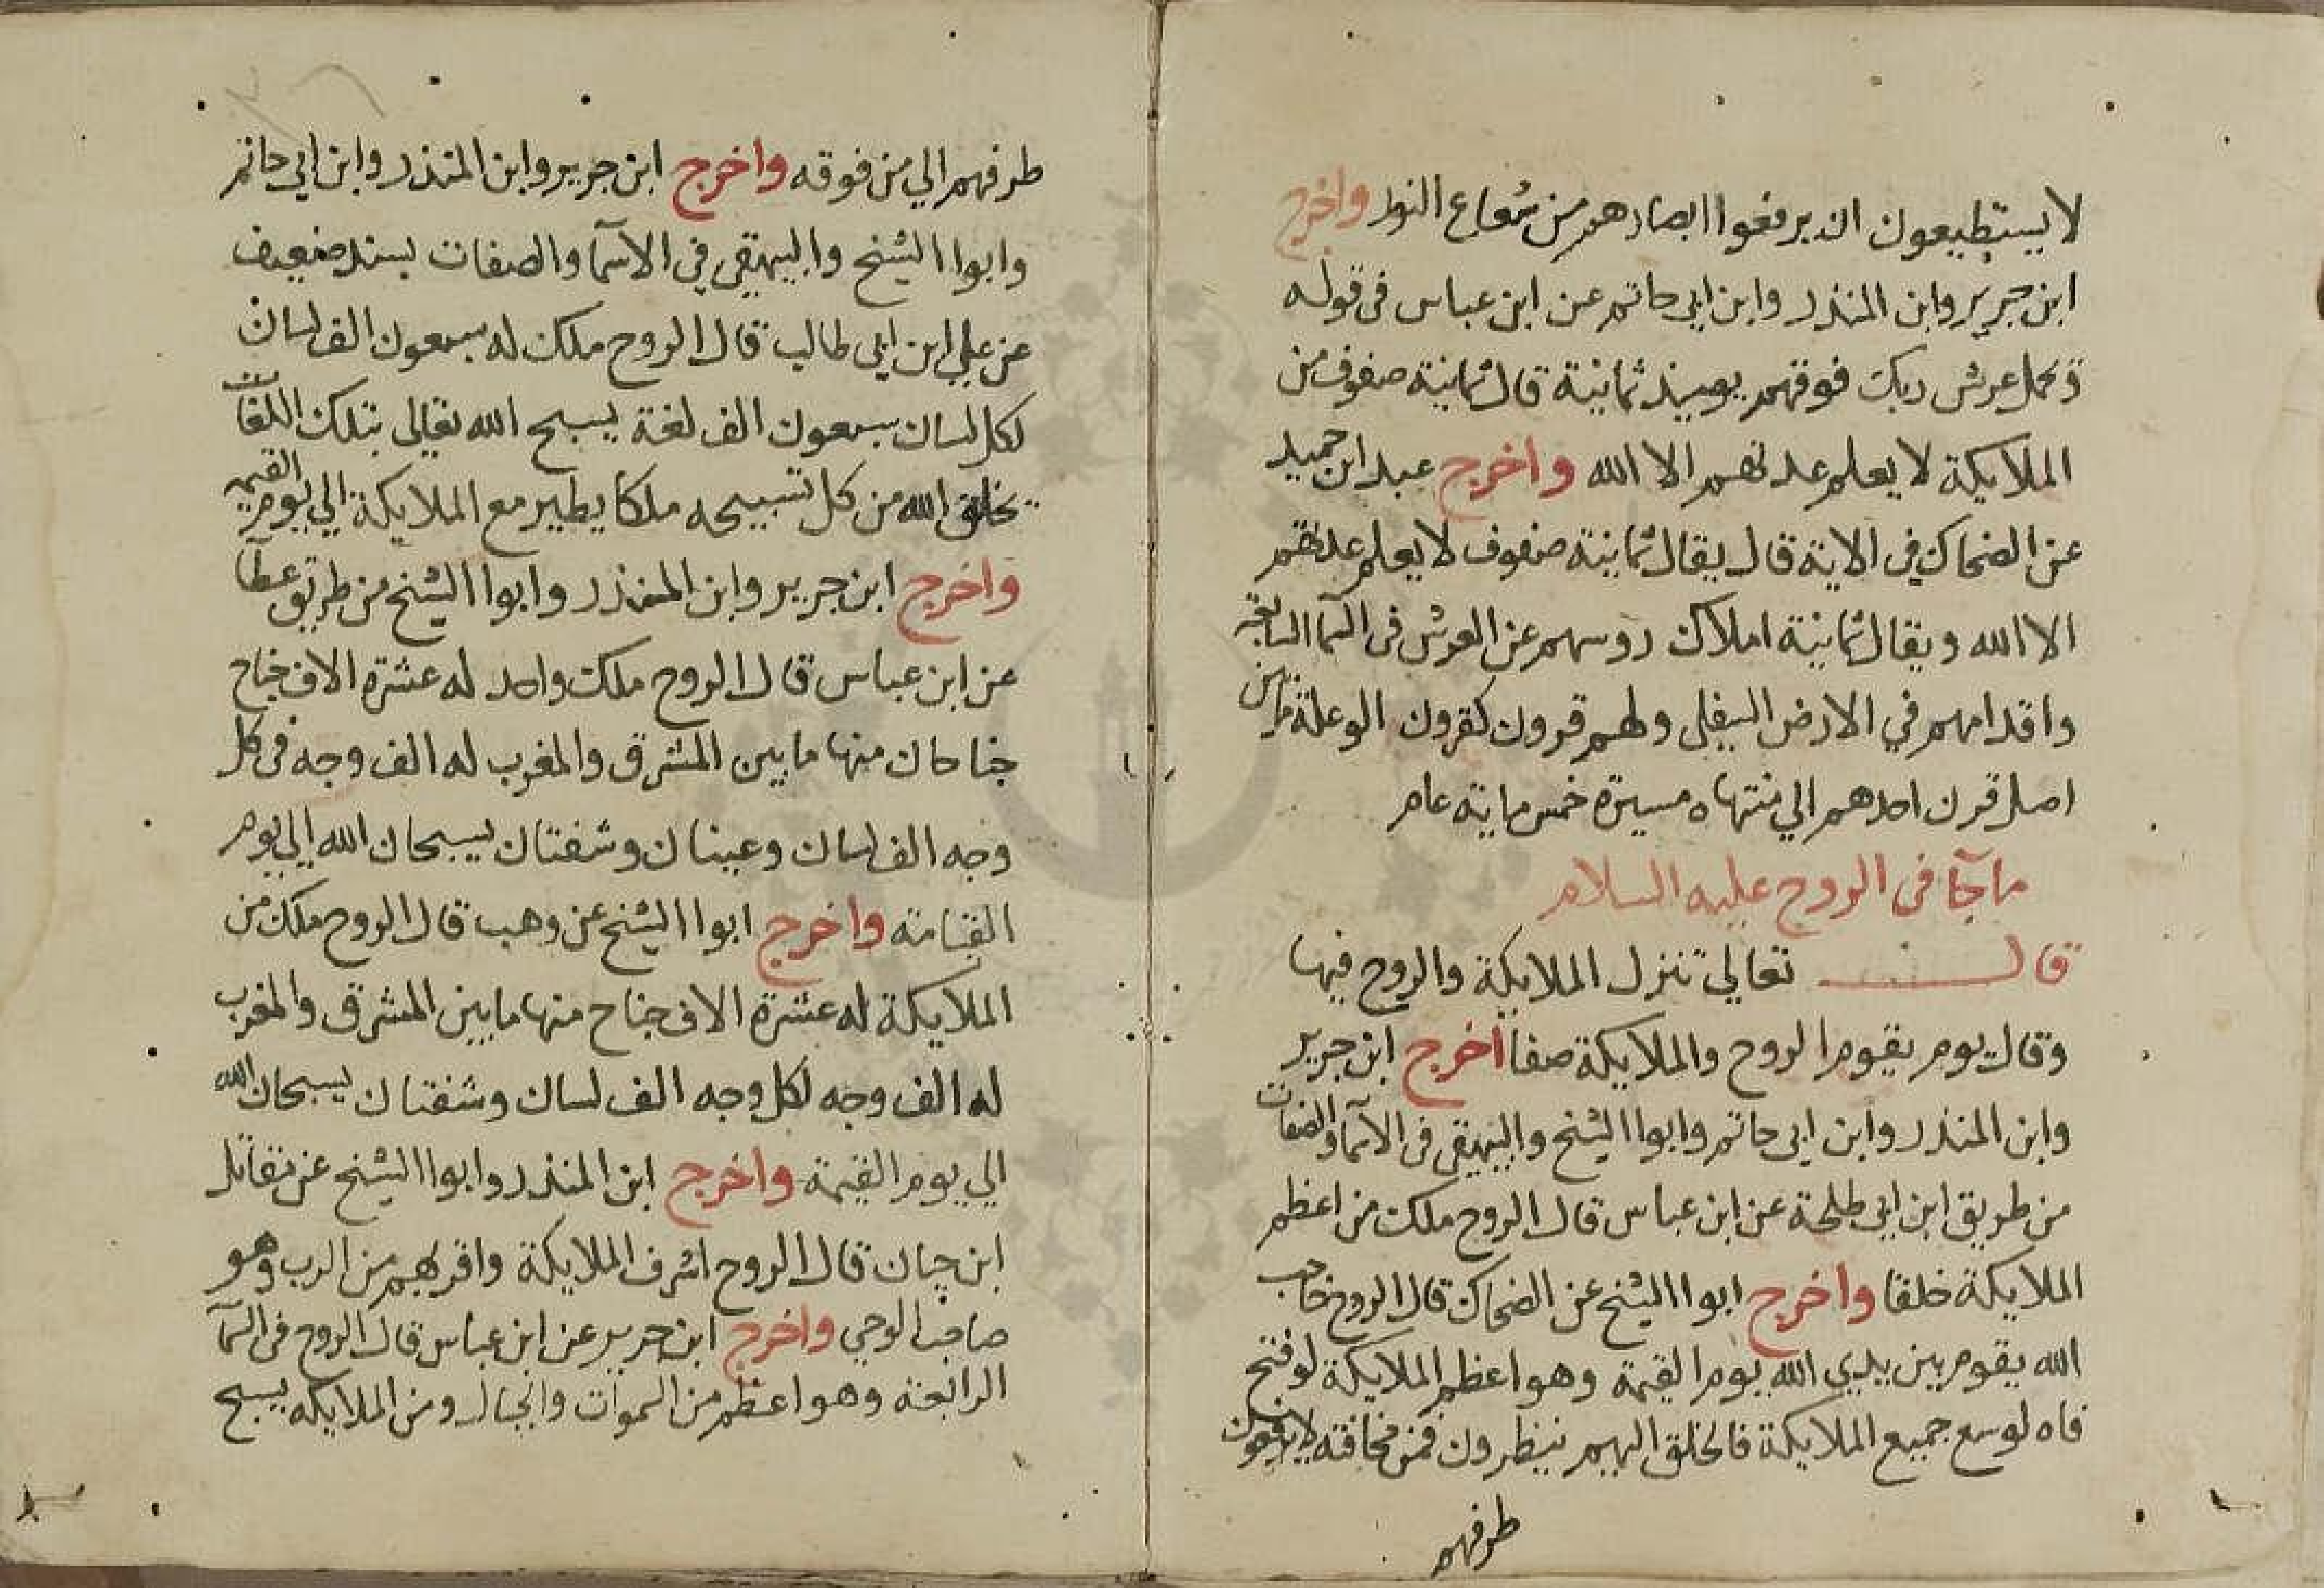 لا يستطيعون ان يرفعوا ابصارهم من شعاع النور واخرج
ابن جرير وابن المنذر وابن ابي حاتم عن ابن عباس في قوله
ويحمل عرش ربك فوقهم يوميذ ثمانية قال ثمانية صفوف من
الملايكة لا يعلم عدتهم الا الله واخرج عبد ابن حميد
عن الضحاك في الاية قال يقال ثمانية صفوف لا يعلم عدتهم
الا الله ويقال ثمانية املاك روسهم عن العرش في السما السابعة
واقدامهم في الارض السفلى ولهم قرون كقرون الوعلة ما بين
اصل قرن احدهم الي منتهاه مسيرة خمس ماية عام
ما جآ في الروح عليه السلام
قال تعالي تنزل الملايكة والروح فيها
وقال يوم يقوم الروح والملايكة صفا اخرج ابن جرير
وابن المنذر وابن ابي حاتم وابوا الشيخ والبيهقي في الاسمآ والصفات
من طريق ابن ابي طلحة عن ابن عباس قال الروح ملك من اعظم
الملايكة خلقا واخرج ابوا الشيخ عن الضحاك قال الروح حاجب
الله يقوم بين يدي الله يوم القيمة وهو اعظم الملايكة لو فتح
فاه لوسع جميع الملايكة فالخلق اليهم ينظرون فمن مخافته لا يرفعون
طرفهم
طرفهم الي من فوقه واخرج ابن جرير وابن المنذر وابن ابي حاتم
وابوا الشيخ والبيهقي في الاسمآ والصفات بسند ضعيف
عن علي ابن ابي طالب قال الروح ملك له سبعون الف لسان
لكل لسان سبعون الف لغة يسبح الله تعالي بتلك اللغات
يخلق الله من كل تسبيحه ملكا يطير مع الملايكة الي يوم القيمة
واخرج ابن جرير وابن المنذر وابوا الشيخ من طريق عطآ
عن ابن عباس قال الروح ملك واحد له عشرة الاف جناح
جناحان منها ما بين المشرق والمغرب له الف وجه في كل
وجه الف لسان وعينان وشفتان يسبحان الله الي يوم
القيامة واخرج ابوا الشيخ عن وهب قال الروح ملك من
الملايكة له عشرة الاف جناح منها ما بين المشرق والمغرب
له الف وجه لكل وجه الف لسان وشفتان يسبحان الله
الي يوم القيمة واخرج ابن المنذر وابوا الشيخ عن مقاتل
ابن حيان قال الروح اشرف الملايكة واقربهم من الرب وهو
صاحب الوحي واخرج ابن جرير عن ابن عباس قال الروح في السمآ
الرابعة وهو اعظم من السموات والجبال ومن الملايكه يسبح